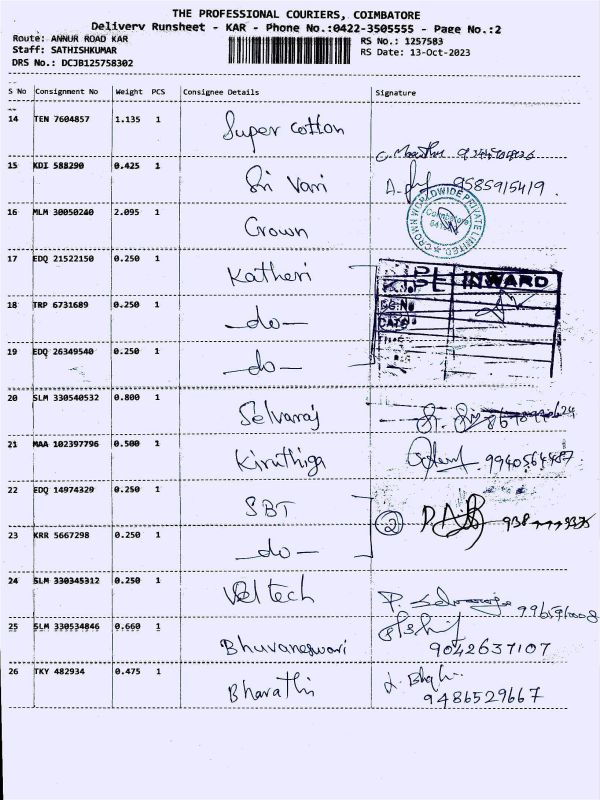 THE PROFESSIONAL COURIERS, COIMBATORE
Delivery Runsheet - KAR - Phone No.:0422-3505555 - Page No.:2
Route: ANNUR ROAD KAR
RS No.: 1257583
Staff: SATHISHKUMAR
RS Date: 13-Oct-2023
DRS No.: DCJB125758302
S No Consignment No Weight PCS Consignee Details Signature
14 TEN 7604857 1.135 1 Super cotton
15 KDI 588290 0.425 1 Sri Vari 9585915419.
16 MLM 30050240 2.095 1 Crown
CROWN WORLDWIDE PRIVATE LIMITED
Coimbatore
17 EDQ 21522150 0.250 1 Katheri
INWARD
18 TRP 6731689 0.250 1 —do—
DATE
19 EDQ 26349540 0.250 1 —do—
20 SLM 330540532 0.800 1 Selvaraj
21 MAA 102397796 0.500 1 Kiruthiga 9940564487
22 EDQ 14974329 0.250 1 SBT 2
23 KRR 5667298 0.250 1 —do—
24 SLM 330345312 0.250 1 Veltech
25 SLM 330534846 0.660 1 Bhuvaneswari 9042637107
26 TKY 482934 0.475 1 Bharathi 9486529667